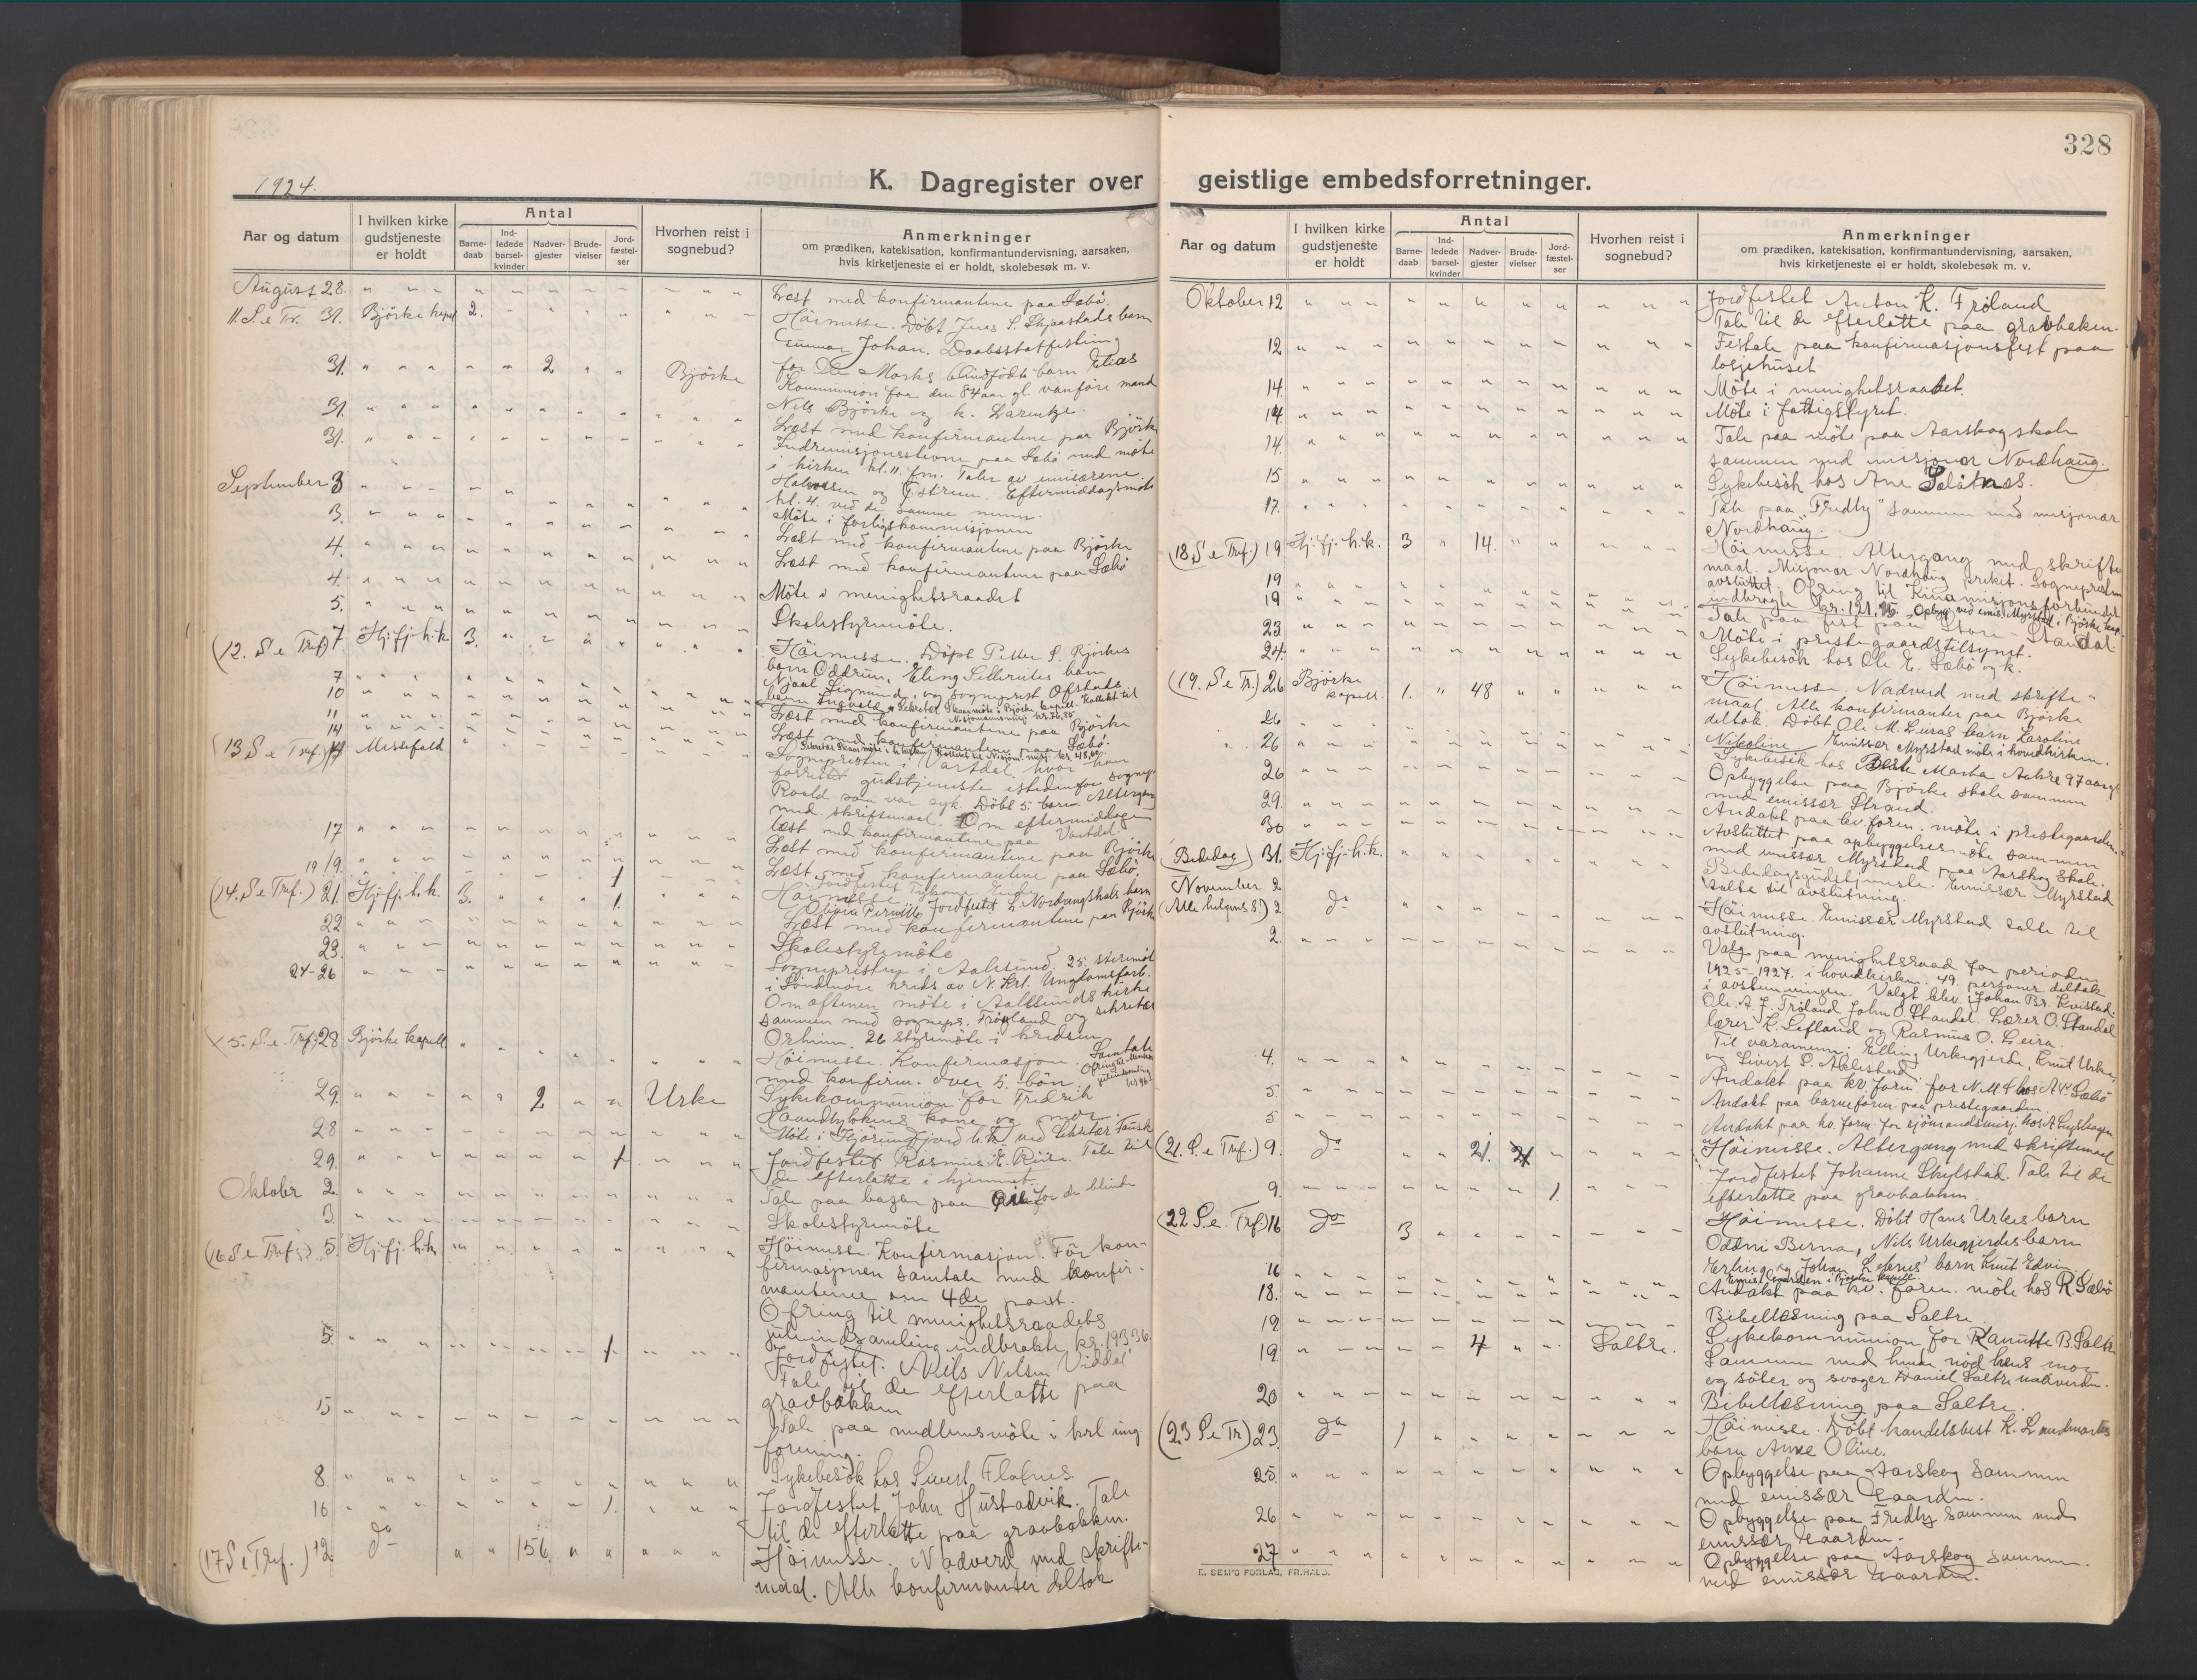 328
1924.
K. Dagregister over
geistlige embedsforretninger.
Aar og datum
I hvilken kirke gudstjeneste er holdt
Antal
Barnedaab
Indledede barselkvinder
Nadvergjester
Brudevielser
Jordfæstelser
Hvorhen reist i sognebud?
Anmerkninger
om prædiken, katekisation, konfirmantundervisning, aarsaken,
hvis kirketjeneste ei er holdt, skolebesøk m. v.
August 28. Læst med konfirmantene paa Sæbö.
11. S. e Tr. 31. Björke kapel 2. Höimesse. Döbt Jens S. Skjaastads barn
Gunnar Johan. Daabsstatfesting
for Ole Morks blindfödte barn Elias
31. 2 Björke Kommunion for den 84 aar gl. vanföre mand
Nils Björke og k. Larentze.
31. Læst med konfirmantene paa Björke
31. Indremisjonsstevne paa Sæbö med möte
i kirken kl. 11. fm. Taler av emisærene
Halvorsen og Östrem. Eftermiddagsmöte
kl. 4. ved de samme menn.
September 3 Möte i forligskommisjonen
3. Læst med konfirmantene paa Björke
4. Læst med konfirmantene paa Sæbö
4. Möte i menighetsraadet
5. Skolestyremöte.
(12. S. e Tref) 7 Hj.fj.h.k 3. Höimesse. Döpt Petter S. Björkes
barn Oddrun, Eling Sellerutes barn
Njaal Sigmund, og sogneprest Ofstads
barn Ingvald.
7
10 Læst med konfirmantene paa Björke
11 Læst med konfirmantene paa Sæbö.
14
(13 S. e Tref.) 14 Messefald Sognepresten i Vartdal hvor han
forrettet gudstjeneste istedenfor sognepr.
Roald som var syk. Döbt 5 barn Altergang
med skriftemaal. Om eftermiddagen
læst med konfirmantene paa Vartdal.
17 Læst med konfirmantene paa Björke
19 Læst med konfirmantene paa Sæbö.
(14. S e Tref.) 21. Hj.fj.h.k. 3. 1. Höimesse
22 Læst med konfirmantene paa Björke
23. Skolestyremöte
24-26 Sognepresten i Aalesund. 25. styremöte
i Söndmöre kreds av N. Krl. Ungdomsforb.
Om aftenen möte i Aalesunds kirke
sammen med sognepr. Fröyland og sekretær
Orheim. 26 styremöte i kredsen
28 Björke kapell Höimesse. Konfirmasjon. Samtale
med konfirm. over 5. bön.
29. 2 Urke Sykekommunion for Fredrik
28 Möte i Hjörungfjord h.k. ved sekretær Fausk
29. 1 Jordfestet Rasmus E. Riise. Tale til
de efterlatte i hjemmet.
Oktober 2. Tale paa basar paa for de blinde
3. Skolestyremöte
(16 S e Tref.) 5. Hj.fj.h.k Höimesse. Konfirmasjon. För kon-
firmasjonen samtale med konfir-
mantene om 4de part.
Ofring til menighetsraadets
juleindsamling indbrakte kr. 193.36.
5. 1 Jordfestet Niels Nilsen Viddal
Tale til de efterlatte paa
gravbakken
5 Tale paa medlemsmöte i krl ung.
forening.
8. Sykebesök hos Sivert Flofnes
10 1. Jordfestet John Hustadvik. Tale
til de efterlatte paa gravbakken.
(17 S e Tref.) 12. do 156. Höimesse. Nadverd med skrifte-
maal. Alle konfirmanter deltok
Oktober 12 Jordfestet Anton K. Fröland
Tale til de efterlatte paa gravbakken.
12 Festale paa konfirmasjonsfest paa
losjehuset
14. Möte i menighetsraadet.
14. Möte i fattigstyret.
14. Tale paa möte paa Aarskog skole
sammen med misjonær Nordhaug.
15 Sykebesök hos Ane
17. Tale paa "Fredly" sammen med misjonær
Nordhaug.
(18 S e Tref.) 19 Hj.fj.h.k. 3 14. Höimesse. Altergang med skrifte-
maal. Misjonær Nordhaug preket. Sognepresten
avsluttet. Ofring til Kinamisjonsforbundet
indbragte kr. 121,
19
19 Tale paa fest paa Store-Standal
23 Möte i prestegaardstilsynet.
24. Sykebesök hos Ole E. Sæbö og k.
(19. S e Tr.) 26 Björke kapell. 1. 48 Höimesse. Nadverd med skrifte-
maal. Alle konfirmanter paa Björke
deltok. Döbt Ole M. Luras barn Karoline
Nikoline Emissær Myrstad möte i hovedkirken.
26 Sykebesök hos Marta Aakre 97 aar gl.
26 Opbyggelse paa Björke skole sammen
med emissær Strand.
29. Andakt paa kv. foren. möte i prestegaarden.
30 Avsluttet paa opbyggelsesmöte sammen
med emissær Myrstad paa Aarskog skole.
(Bededag) 31. Hj.fj.h.k. Bededagsgudstjeneste. Emissær Myrstad
talte til avslutning.
November 2
(Alle helgens S.) 2 do Höimesse. Emissær Myrstad talte til
avslutning.
2. Valg paa menighetsraad for perioden
1925-1927. i hovedkirken. 49. personer deltok
i avstemningen. Valgt blev: Johan Br. Kvistad.
Ole A. J. Fröland John O. Standal. Lærer O. Standal
lærer K. Lefland og Rasmus O. Leira.
Til varamenn: Elling Urkegjerde, Knut Urke,
og Sivert S.
4. Andakt paa kv. foren for N.M.S hos A. Sæbö
5. Andakt paa barneforen. paa prestegaarden.
5 Andakt paa kv. foren. for sjömandsmisj. hos
(21. S. e Tref.) 9. do 21. Höimesse. Altergang med skriftemaal
9. 1. Jordfestet Johanne Skylstad. Tale til de
efterlatte paa gravbakken.
(22 S.e. Tref) 16 do 3 Höimesse. Döbt Hans Urkes barn
Oddni Berna, Nils Urkegjerdes barn
Erling og Johan barn Knut Edvin.
16
18. Andakt paa kv. foren. möte hos R. Sæbö
19 Bibellesning paa Saltre
19 4 Saltre. Sykekommunion for Kanutte B. Saltre
Sammen med hende nöd hans mor
og söster og svoger Daniel Saltre nadverden.
20 Bibellesning paa Saltre.
(23 S e Tr) 23. do 1 Höimesse. Döbt handelsbest K. Lundmarks
barn Anne Oline.
25. Opbyggelse paa Aarskog sammen
med emissær Gaarden.
26 Opbyggelse paa Fredly sammen med
emissær Gaarden.
27 Opbyggelse paa Aarskog sammen
med emissær Gaarden.
E. SEM'S FORLAG, FR.HALD.